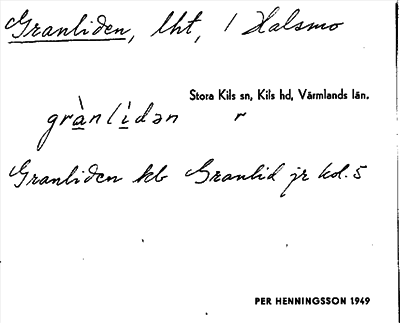 Granliden, lht, / Halsmo
Stora Kils sn, Kils hd, Värmlands län.
grànlìdən r
Granliden kb Granlid jr kol. 5
PER HENNINGSSON 1949